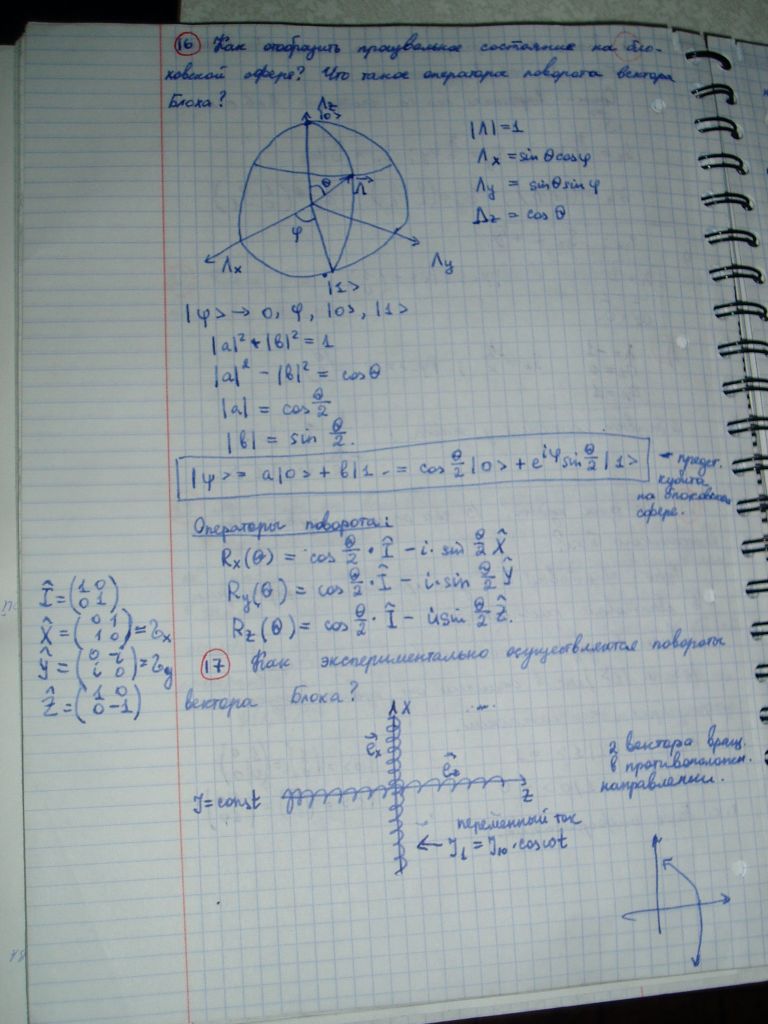 16 Как отобразить произвольное состояние на бло-
ховской сфере? Что такое операторы поворота вектора
Блоха?
Λz
|0>
θ
Λ
φ
Λx
Λy
|1>
|Λ| = 1
Λx = sin θ cos φ
Λy = sin θ sin φ
Λz = cos θ
|φ> → θ, φ, |0>, |1>
|a|² + |b|² = 1
|a|² - |b|² = cos θ
|a| = cos θ/2
|b| = sin θ/2.
|φ> = a|0> + b|1> = cos θ/2 |0> + e^{iφ} sin θ/2 |1>
- предст.
кубита
на блоховской
сфере.
Операторы поворота:
Rx(θ) = cos θ/2 · Î - i · sin θ/2 X̂
Ry(θ) = cos θ/2 · Î - i · sin θ/2 Ŷ
Rz(θ) = cos θ/2 · Î - i sin θ/2 Ẑ.
Î = (1 0
0 1)
X̂ = (0 1
1 0) = σx
Ŷ = (0 -i
i 0) = σy
Ẑ = (1 0
0 -1)
17 Как экспериментально осуществляются повороты
вектора Блоха?
X
ex
Z
J = const
переменный ток
← J₁ = J₁₀ · cos ωt
2 вектора вращ.
в противополож.
направлении.